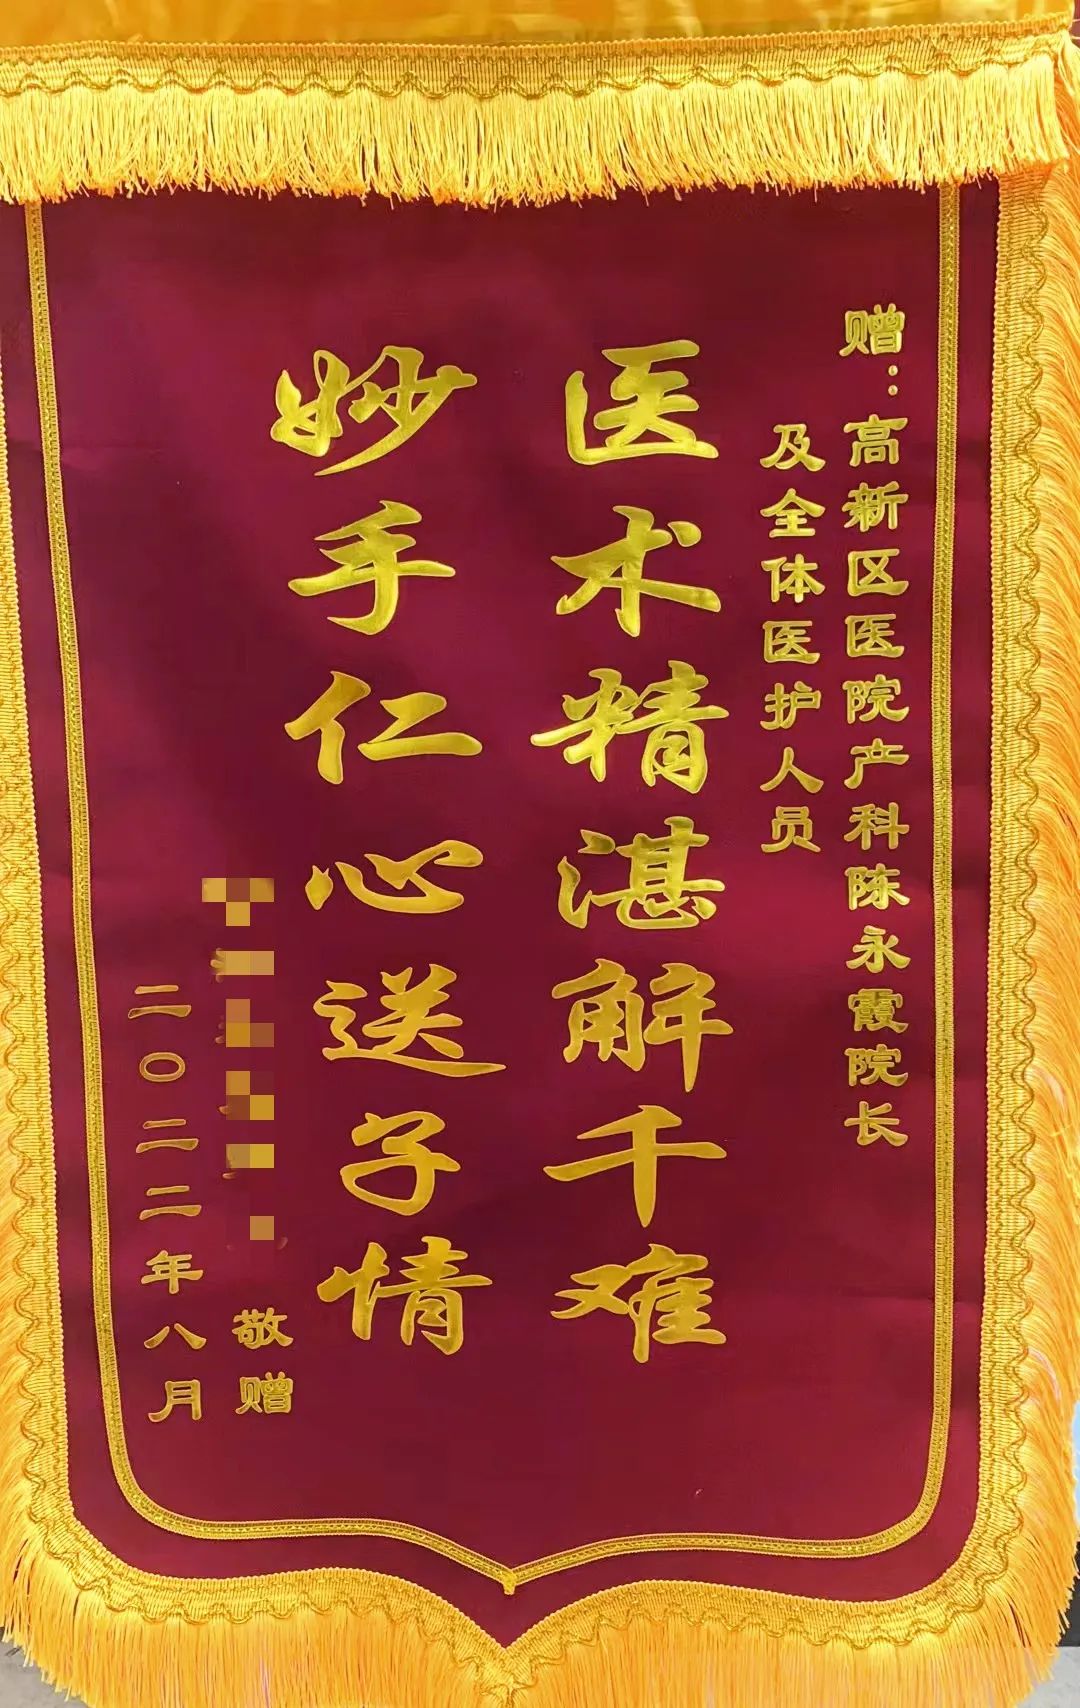 赠：高新区医院产科陈永霞院长
及全体医护人员
医术精湛解千难
妙手仁心送子情
敬赠
二〇二二年八月